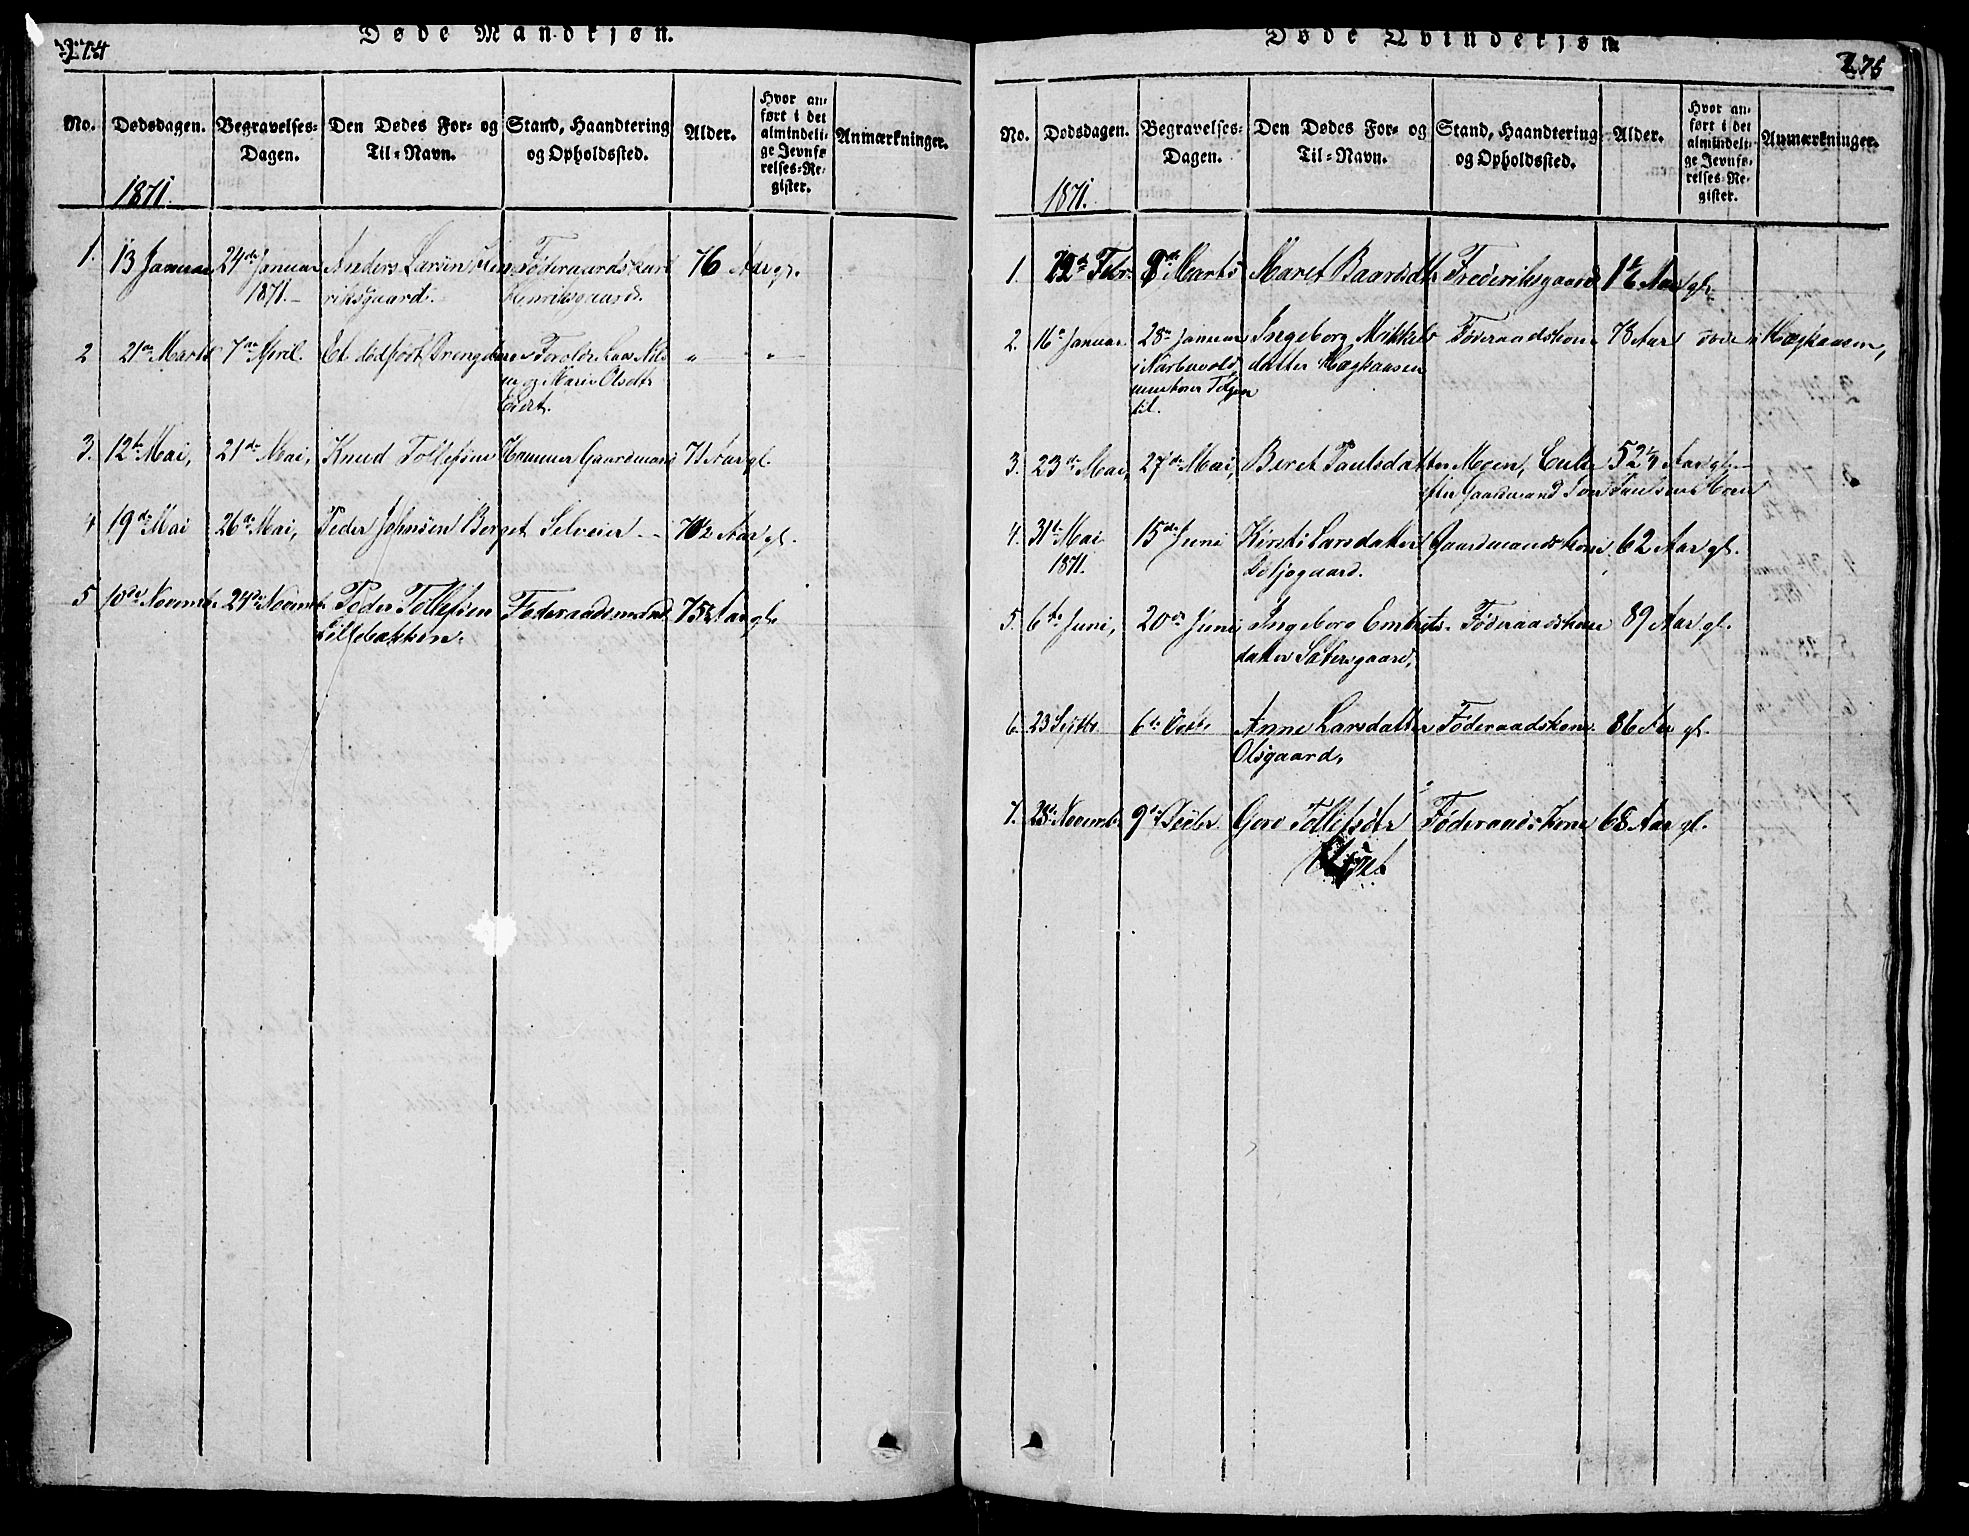 274
Døde Mandkjøn.
No. Dødsdagen. Begravelses-Dagen. Den Dødes For- og Til-Navn. Stand, Haandtering og Opholdssted. Alder. Hvor anført i det almindelige Jevnførelses-Register. Anmærkninger.
1871.
1. 13 Januar 24de Januar Anders Larsen Hen- Føderaadskarl 76 Aar gl.
1871.- riksgaard. Henriksgaard.
2 21de Marts 7de April. Et dødført Drengebarn Foreldr. Lars Nils „ „
og Marie Olsdtr
Eidet.
3. 12te Mai, 21de Mai, Knud Tollefsen Hammer Gaardmand 71 Aar gl.
4 19de Mai 26de Mai, Peder Johnsen Berget Selveier - 70 1/2 Aar gl.
5 10de Novemb. 24de Novemb. Peder Tollefsen Føderaadsmand 75 1/2 Aar gl.
Lillebakken.
275
Døde Qvindekjøn
No. Dødsdagen. Begravelses-Dagen. Den Dødes For- og Til-Navn. Stand, Haandtering og Opholdssted. Alder. Hvor anført i det almindelige Jevnførelses-Register. Anmærkninger.
1871.
1. 12te Febr. 8de Marts Maret Baardsdtr Frederiksgaard Aar gl.
2. 16de Januar 28de Januar Ingeborg Mikkels- Føderaadskone 78 Aar døde i Maghausen,
i Narbuvold datter Maghausen
Tolgen
til.
3. 23de Mai, 27de Mai, Beret Paulsdatter Moen, Enke 52 1/4 Aar gl.
efter Gaardmand Paulsen Moen
4. 31te Mai 15de Juni Kirsti Larsdatter Gaardmandskone 62 Aar gl.
1871. Liljogaard.
5. 6te Juni, 20de Juni Ingeborg Embrets- Føderaadskone 89 Aar gl.
datter Sætersgaard,
6. 23 Septbr. 6te Octbr Anne Larsdatter Føderaadskone 86 Aar gl.
Olsgaard,
7. 28de Novemb. 9de Decbr Guro Tollefsdtr Føderaadskone 68 Aar gl.